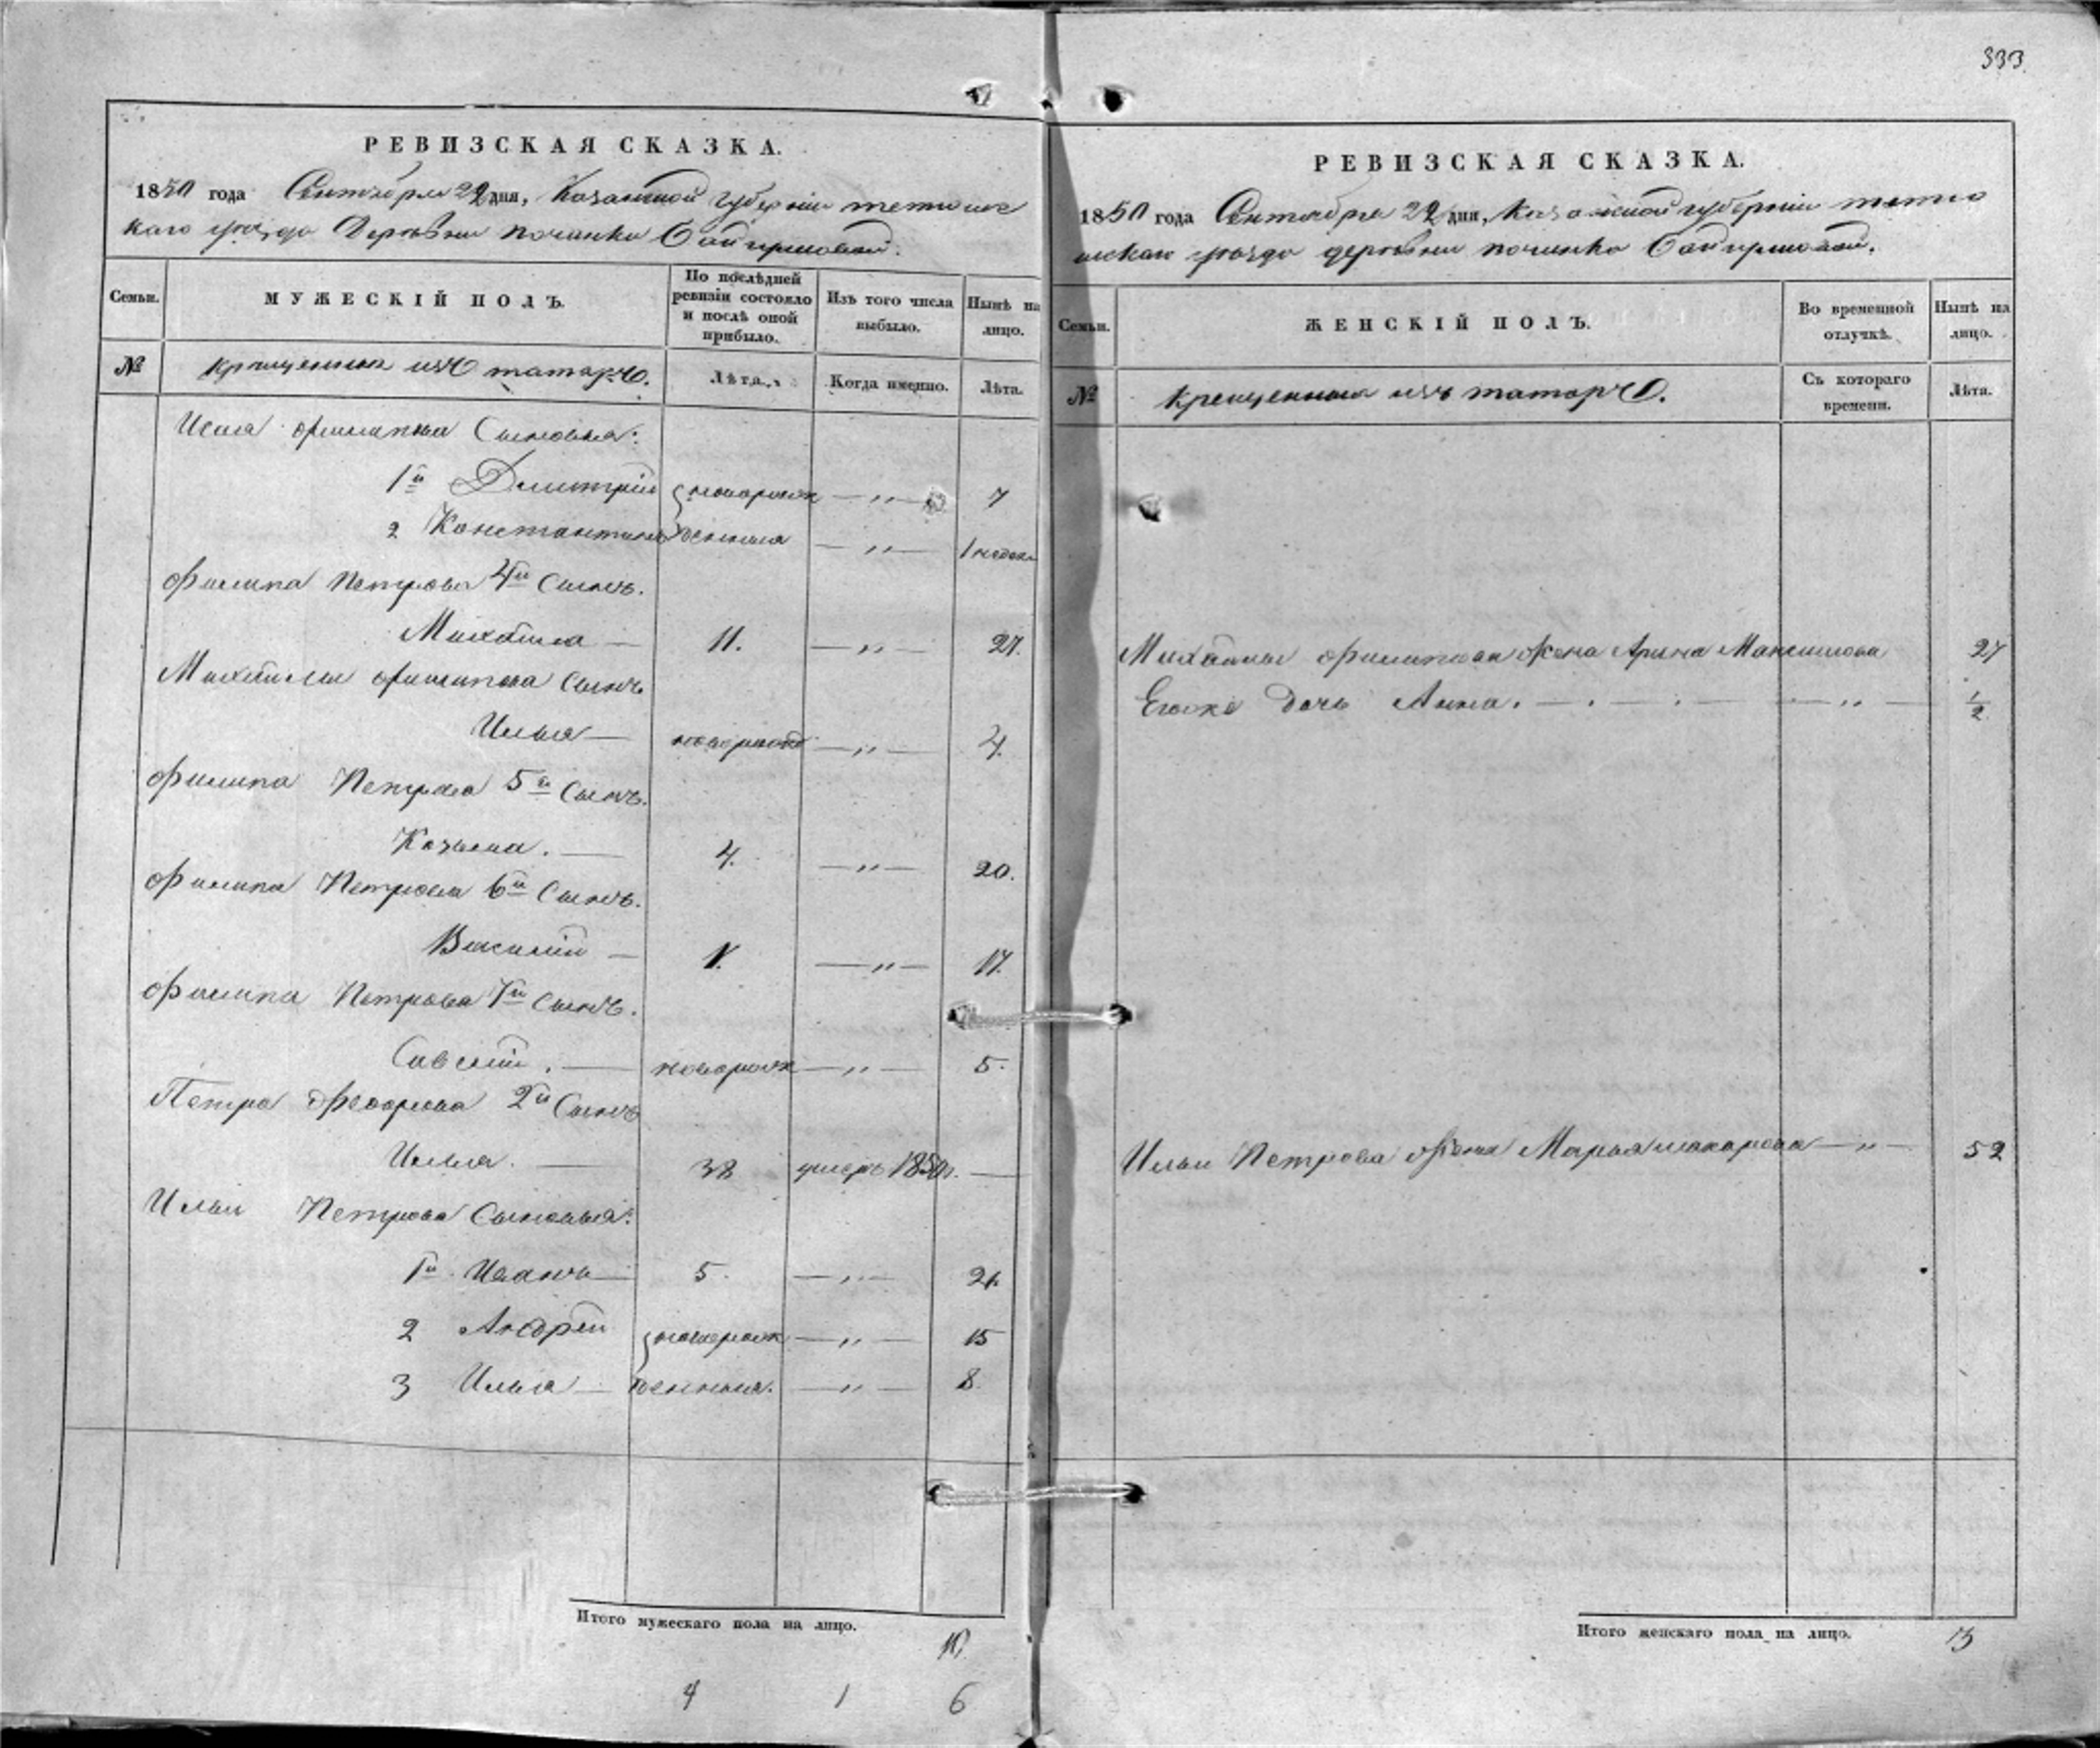 333
РЕВИЗСКАЯ СКАЗКА.
1850 года Сентября 22 дня, Казанской губерніи тетюшс
каго уезда Деревни починка Байгуловой.
Семьи.
МУЖЕСКІЙ ПОЛЪ.
По послѣдней ревизіи состояло и послѣ оной прибыло.
Изъ того числа выбыло.
Нынѣ на лицо.
№
крещенныя изъ татаръ.
Лѣта.
Когда именно.
Лѣта.
Филипова Сыновья:
1й Дмитрій новорож — „ — 7
2 Константинъ денныя — „ — 1 недел
Филипа Петрова 4й Сынъ.
Михайла — 11. — „ — 27.
Михайлы Филипова Сынъ
Илья — новорожд — „ — 4.
Филипа Петрова 5й Сынъ.
Козьма. — 4. — „ — 20.
Филипа Петрова 6й Сынъ.
Василій — 1. — „ — 17.
Филипа Петрова 7й Сынъ.
Савелій. — новорож — „ — 5.
Петра Федорова 2й Сынъ
Илья. — 38 умеръ 1850г. —
Ильи Петрова Сыновья:
1й Иванъ — 5. — „ — 21.
2 Андрей новорож — „ — 15
3 Илья — денныя. — „ — 8.
Итого мужескаго пола на лицо.
10
4 1 6
РЕВИЗСКАЯ СКАЗКА.
1850 года Сентября 22 дня, Казанской губерніи тетю
шскаго уезда деревни починка Байгуловой.
Семьи.
ЖЕНСКІЙ ПОЛЪ.
Во временной отлучкѣ.
Нынѣ на лицо.
№
крещенныя изъ татаръ.
Съ котораго времени.
Лѣта.
Михайлы Филипова жена Арина Максимова 27
Егоже дочь Анна. — . — . — „ — 1/2
Ильи Петрова жена Марья макарова — „ — 52
Итого женскаго пола на лицо.
3